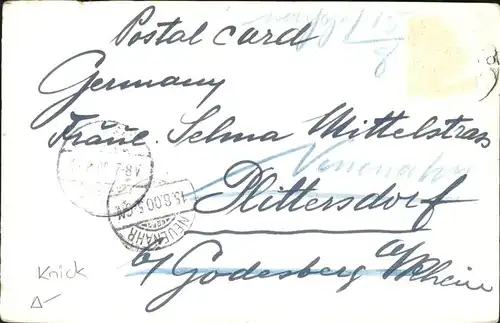 Postal card
Germany
Fräul. Selma Mittelstrass
Neuenahr
Plittersdorf
b/ Godesberg a/Rhein
13.8.00.
NEUENAHR
Knick